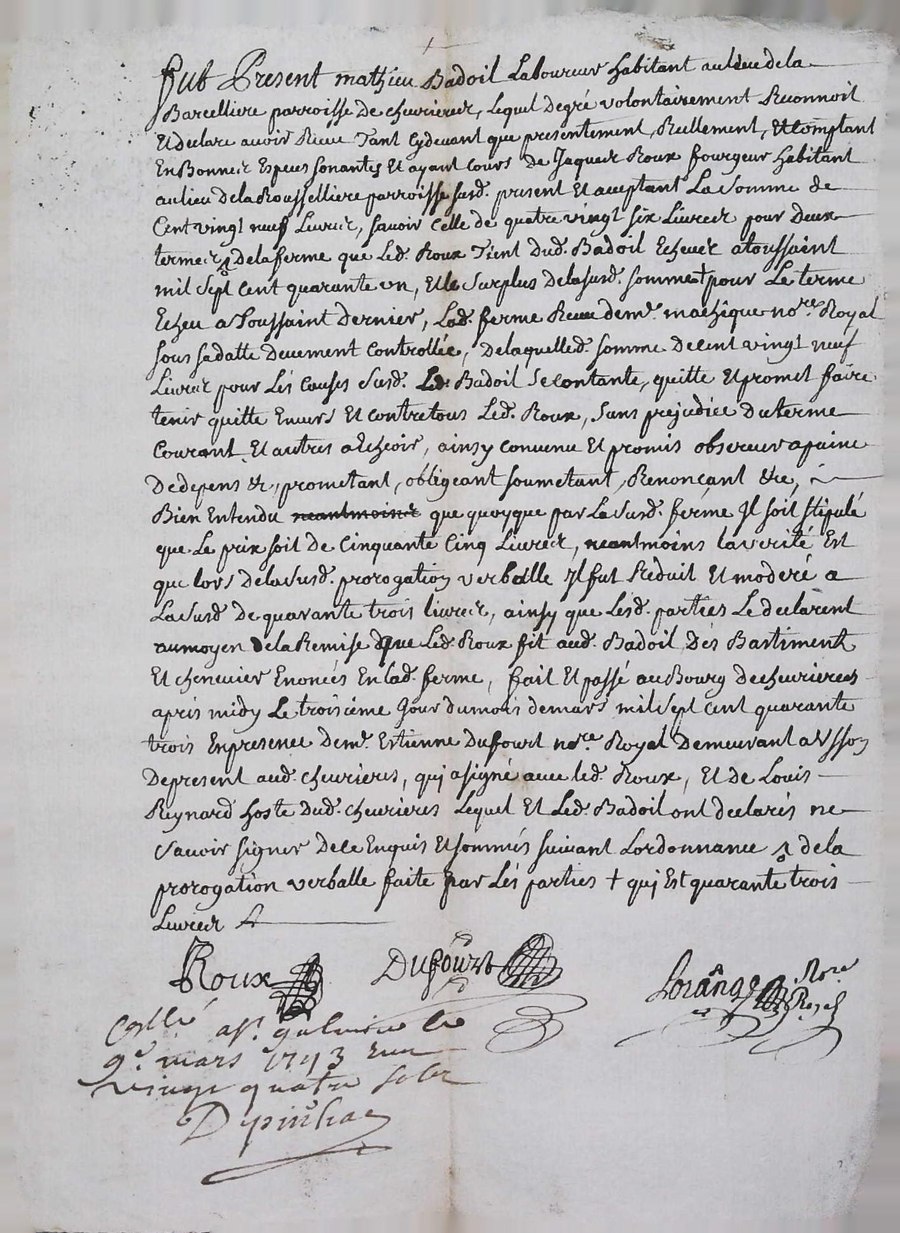 fut Present mathieu Badoil Laboureur habitant au lieu dela
Barcelliere parroisse de chevrieres, lequel degré volontairement Reconnoit
Et declare avoir Receu Tant Cydevant que presentement, Reellement, et Comptant
En Bonnes Especes sonantes Et ayant Cours de Jaques Roux fourgeur habitant
au lieu dela Rousselliere parroisse susd. present Et aceptant La Somme de
Cent vingt neuf Livres, savoir Celle de quatre vingt six Livres pour Deux
termes dela ferme que Led. Roux Tient dud. Badoil Echeues a toussaint
mil sept Cent quarante un, Et le Surplus dela susd. somme + pour Le terme
Echeu a Toussaint Dernier, Lad. ferme Receue de mr. nore Royal
sous sa datte Deuement Controllée, De laquelled. somme de Cent vingt neuf
Livres pour Les Causes susd. Led. Badoil Se Contante, quitte Et promet faire
tenir quitte Envers Et Contre tous Led. Roux, Sans prejudice Du terme
Courant Et autres a Echoir, ainsy Convenu Et promis observer a paine
De depens &c, prometant, obligeant soumetant, Renonçant &c,
Bien Entendu neantmoins que quoyque par La susd. ferme Jl soit stipulé
que Le prix soit de Cinquante Cinq Livres, neantmoins la verité Est
que lors dela susd. prorogation verballe Jl fut Reduit Et moderé a
La susd. de quarante trois livres, ainsy que Lesd. parties Le declarent
au moyen de la Remise que Led. Roux fit aud. Badoil Des Bastiments
Et chenevier Enoncés En lad. ferme, fait Et passé au Bourg de chevrieres
apres midy Le troisiéme Jour du mois de mars mil sept Cent quarante
trois En presence de mr. Estienne Dufourt nore Royal Demeurant a Usson
De present aud. Chevrieres, qui a signé avec led. Roux, Et de Louis
Reynard hoste Dud. Chevrieres Lequel Et Led. Badoil ont declarés ne
Savoir signer De Ce Enquis Et sommés suivant Lordonnance dela
prorogation verballe faite par Les parties + qui Est quarante trois
Livres
Roux Dufourt
nore Royal
Collé a st. galmier le
9e. mars 1743 Receu
vingt quatre sols